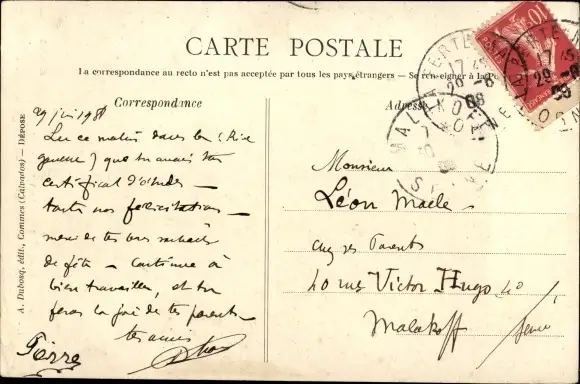 CARTE POSTALE
La correspondance au recto n'est pas acceptée par tous les pays étrangers — Se renseigner à la Po
Correspondance
Adresse
A. Dubosq, édit., Commes (Calvados) — DÉPOSÉ
29 juin 
Lu ce matin dans le
que tu avais ton
certificat d'études —
toutes nos félicitations —
merci de tes bons souhaits
de fête — Continue à
bien travailler, et tu
feras la joie de tes parents
tes amis
Pierre
Monsieur
Léon Maele
chez ses Parents
40 rue Victor Hugo 40
Malakoff
Seine
17 45
29-6
08
MALAKOFF
(SEINE)
10
17 45
29-6
08